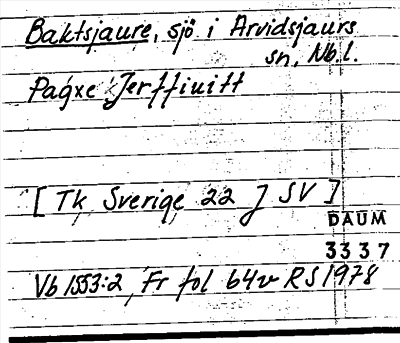 Baktsjaure, sjö i Arvidsjaurs
sn, Nb.l.
Pagxe Jerffiuitt
[Tk Sverige 22 J SV]
DAUM
3337
Vb 1553:2, Fr fol 64v RS 1978